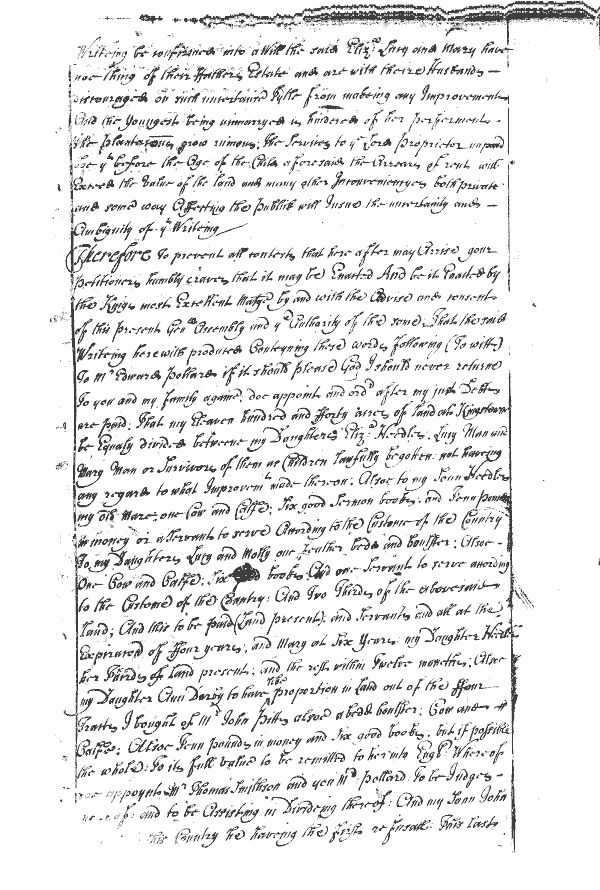 Writeing be construed into a Will the said Eliz: Lucy and Mary have
noe thing of their Fathers Estate and are with theire Husbands –
discouraged on such uncertaine Tytle from makeing any Improvements
And the Youngest being unmarryed is hindered of her preferment –
the Plantations grow ruinous; the Services to ye Lord Proprietor unpaid
before the Age of the Child aforesaid the Arrears of rent will
Exceed the Value of the land and many other Inconveniencyes both private
and some way Affecting the Publick will Insue the uncertainty and –
Ambiguity of ye Writeing
Therefore To prevent all contests that here after may Arrise your
Petitioners humbly craves that it may be Enacted And be it Enacted by
the Kings most Excellent Majty by and with the Advise and consent
of this present Genll Assembly and ye Authority of the same; That the said
Writeing herewith produced Conteyning these words following (To witt)
To Mr Edward Pollard if it should please God I should never returne
To you and my family againe, doe appoint and ord after my just Debts
are paid; That my Eleaven hundred and fforty acres of land att Kingstown
be Equaly divided betweene my Daughters Eliz: Heedles, Lucy Man and
Mary Man or Survivors of them as Children lawfully begotten: not haveing
any regard to what Improvemt made thereon; Alsoe to my Sonn Heedles
my old Mare, one Cow and Calfe; Six good Sermon books; and Tenn pounds
in money or a Servant to serve According to the Custome of the Country
To my Daughters Lucy and Molly one feather bed and boulster; Alsoe –
One Cow and Calfe; Six books; And one Servant to serve according
to the Custome of the Country: And Two Thirds of the abovesaid
Land; And this to be paid (Land present) and Servants and all at the
Expiration of ffour years; and Mary at Six Years my Daughter Heedles
her Thirds of land present; and the rest within Twelve moneths; Alsoe
my Daughter Ann Derby to have proportion in land out of the ffour
Tracts I bought of Mr John Pitts alsoe a bed & boulster; Cow and
Calfe; Alsoe Tenn pounds in money and Six good books, but if possible
the whole: To its full value to be remitted to her into Engld: Whereof
appoynt Mr Thomas Smithson and you Mr Pollard To be Judges –
and to be Assisting in Divideing thereof; And my Sonn John
this Country he haveing the first refusall: This last